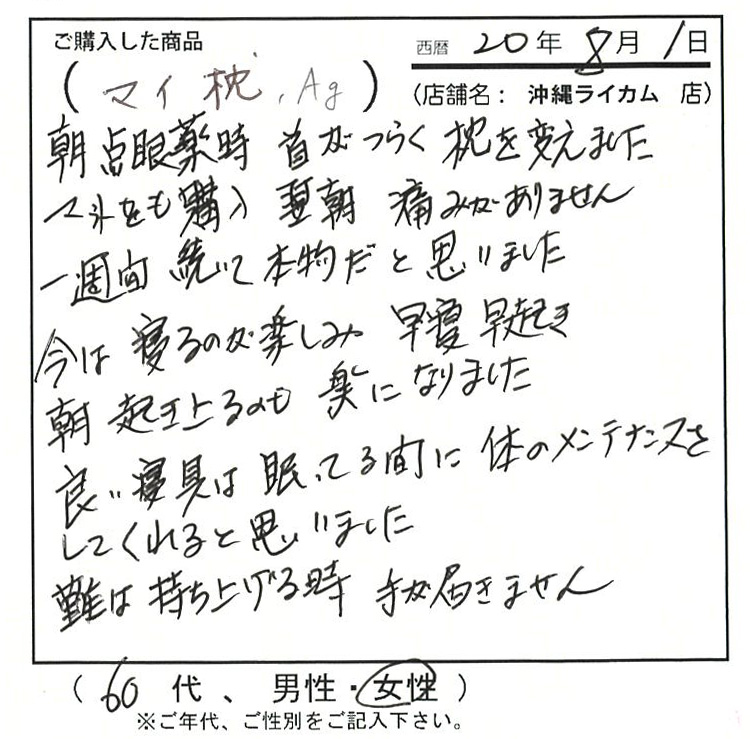 ご購入した商品
西暦 20年 8月 1日
(マイ枕、Ag)
(店舗名: 沖縄ライカム 店)
朝点眼薬時 首がつらく 枕を変えました
マネをも購入 翌朝 痛みがありません
一週間 続いて本物だと思いました
今は 寝るのが楽しみ 早寝早起き
朝 起き上るのも 楽になりました
良い寝具は 眠ってる間に 体のメンテナンスを
してくれると思いました
難は 持ち上げる時 手が届きません
(60 代、 男性・女性)
※ご年代、ご性別をご記入下さい。